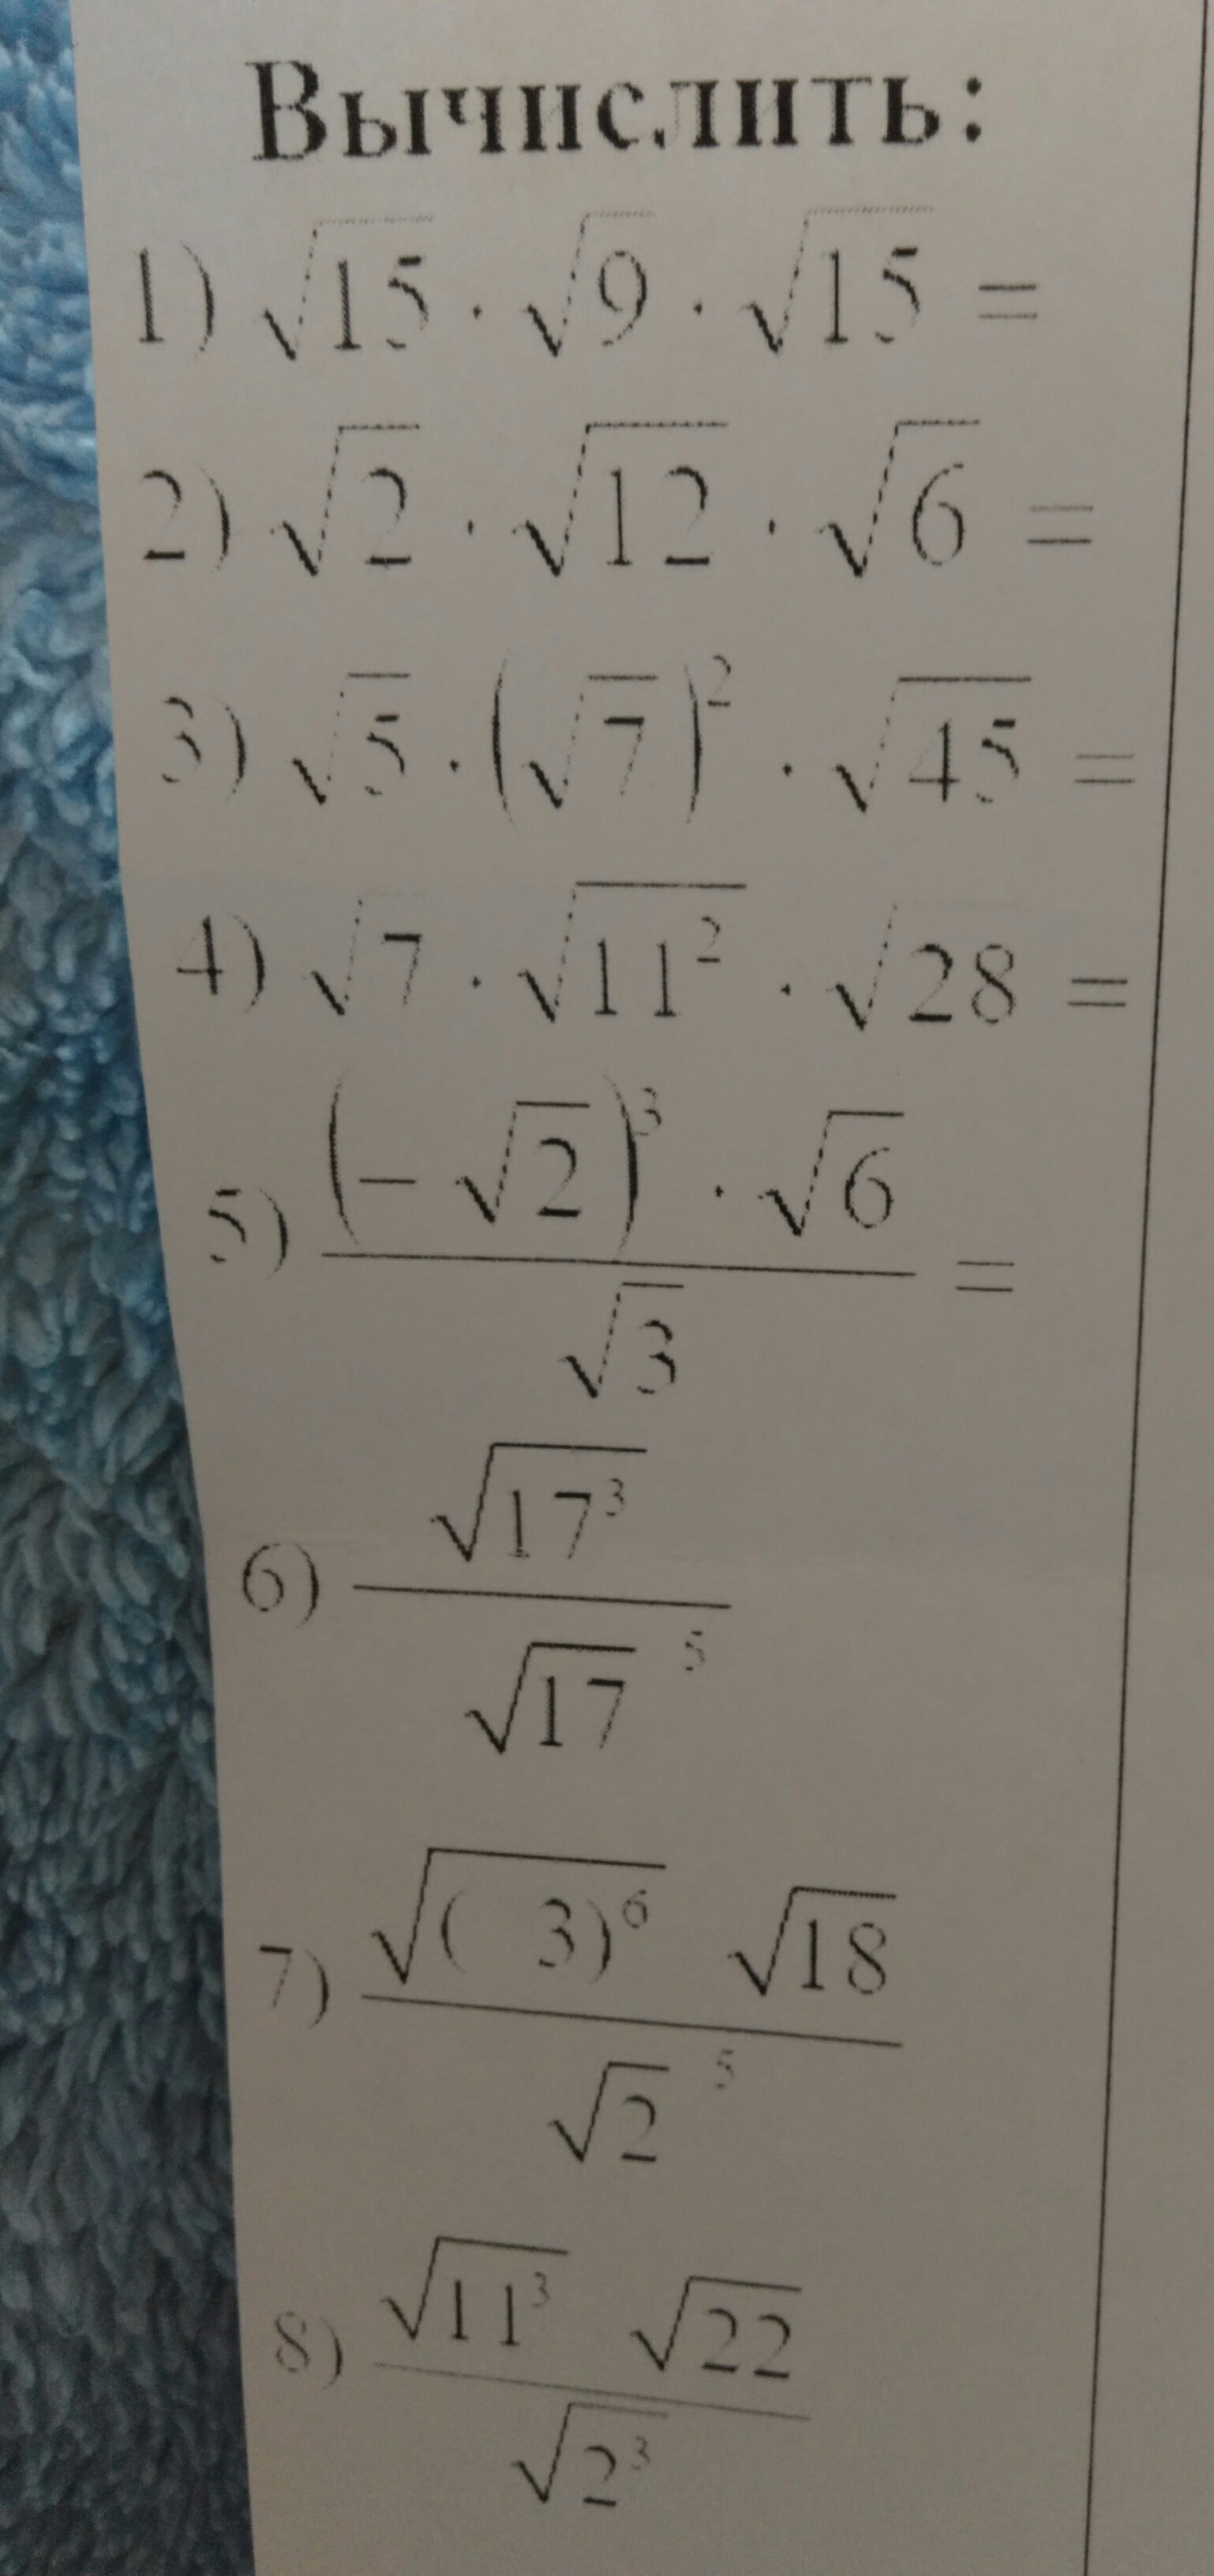 Вычислить:
1) √15 · √9 · √15 =
2) √2 · √12 · √6 =
3) √5 · (√7)² · √45 =
4) √7 · √11² · √28 =
5) (−√2)³ · √6 / √3 =
6) √17³ / √17 ⁵
7) √( 3)⁶ √18 / √2 ⁵
8) √11³ √22 / √2³